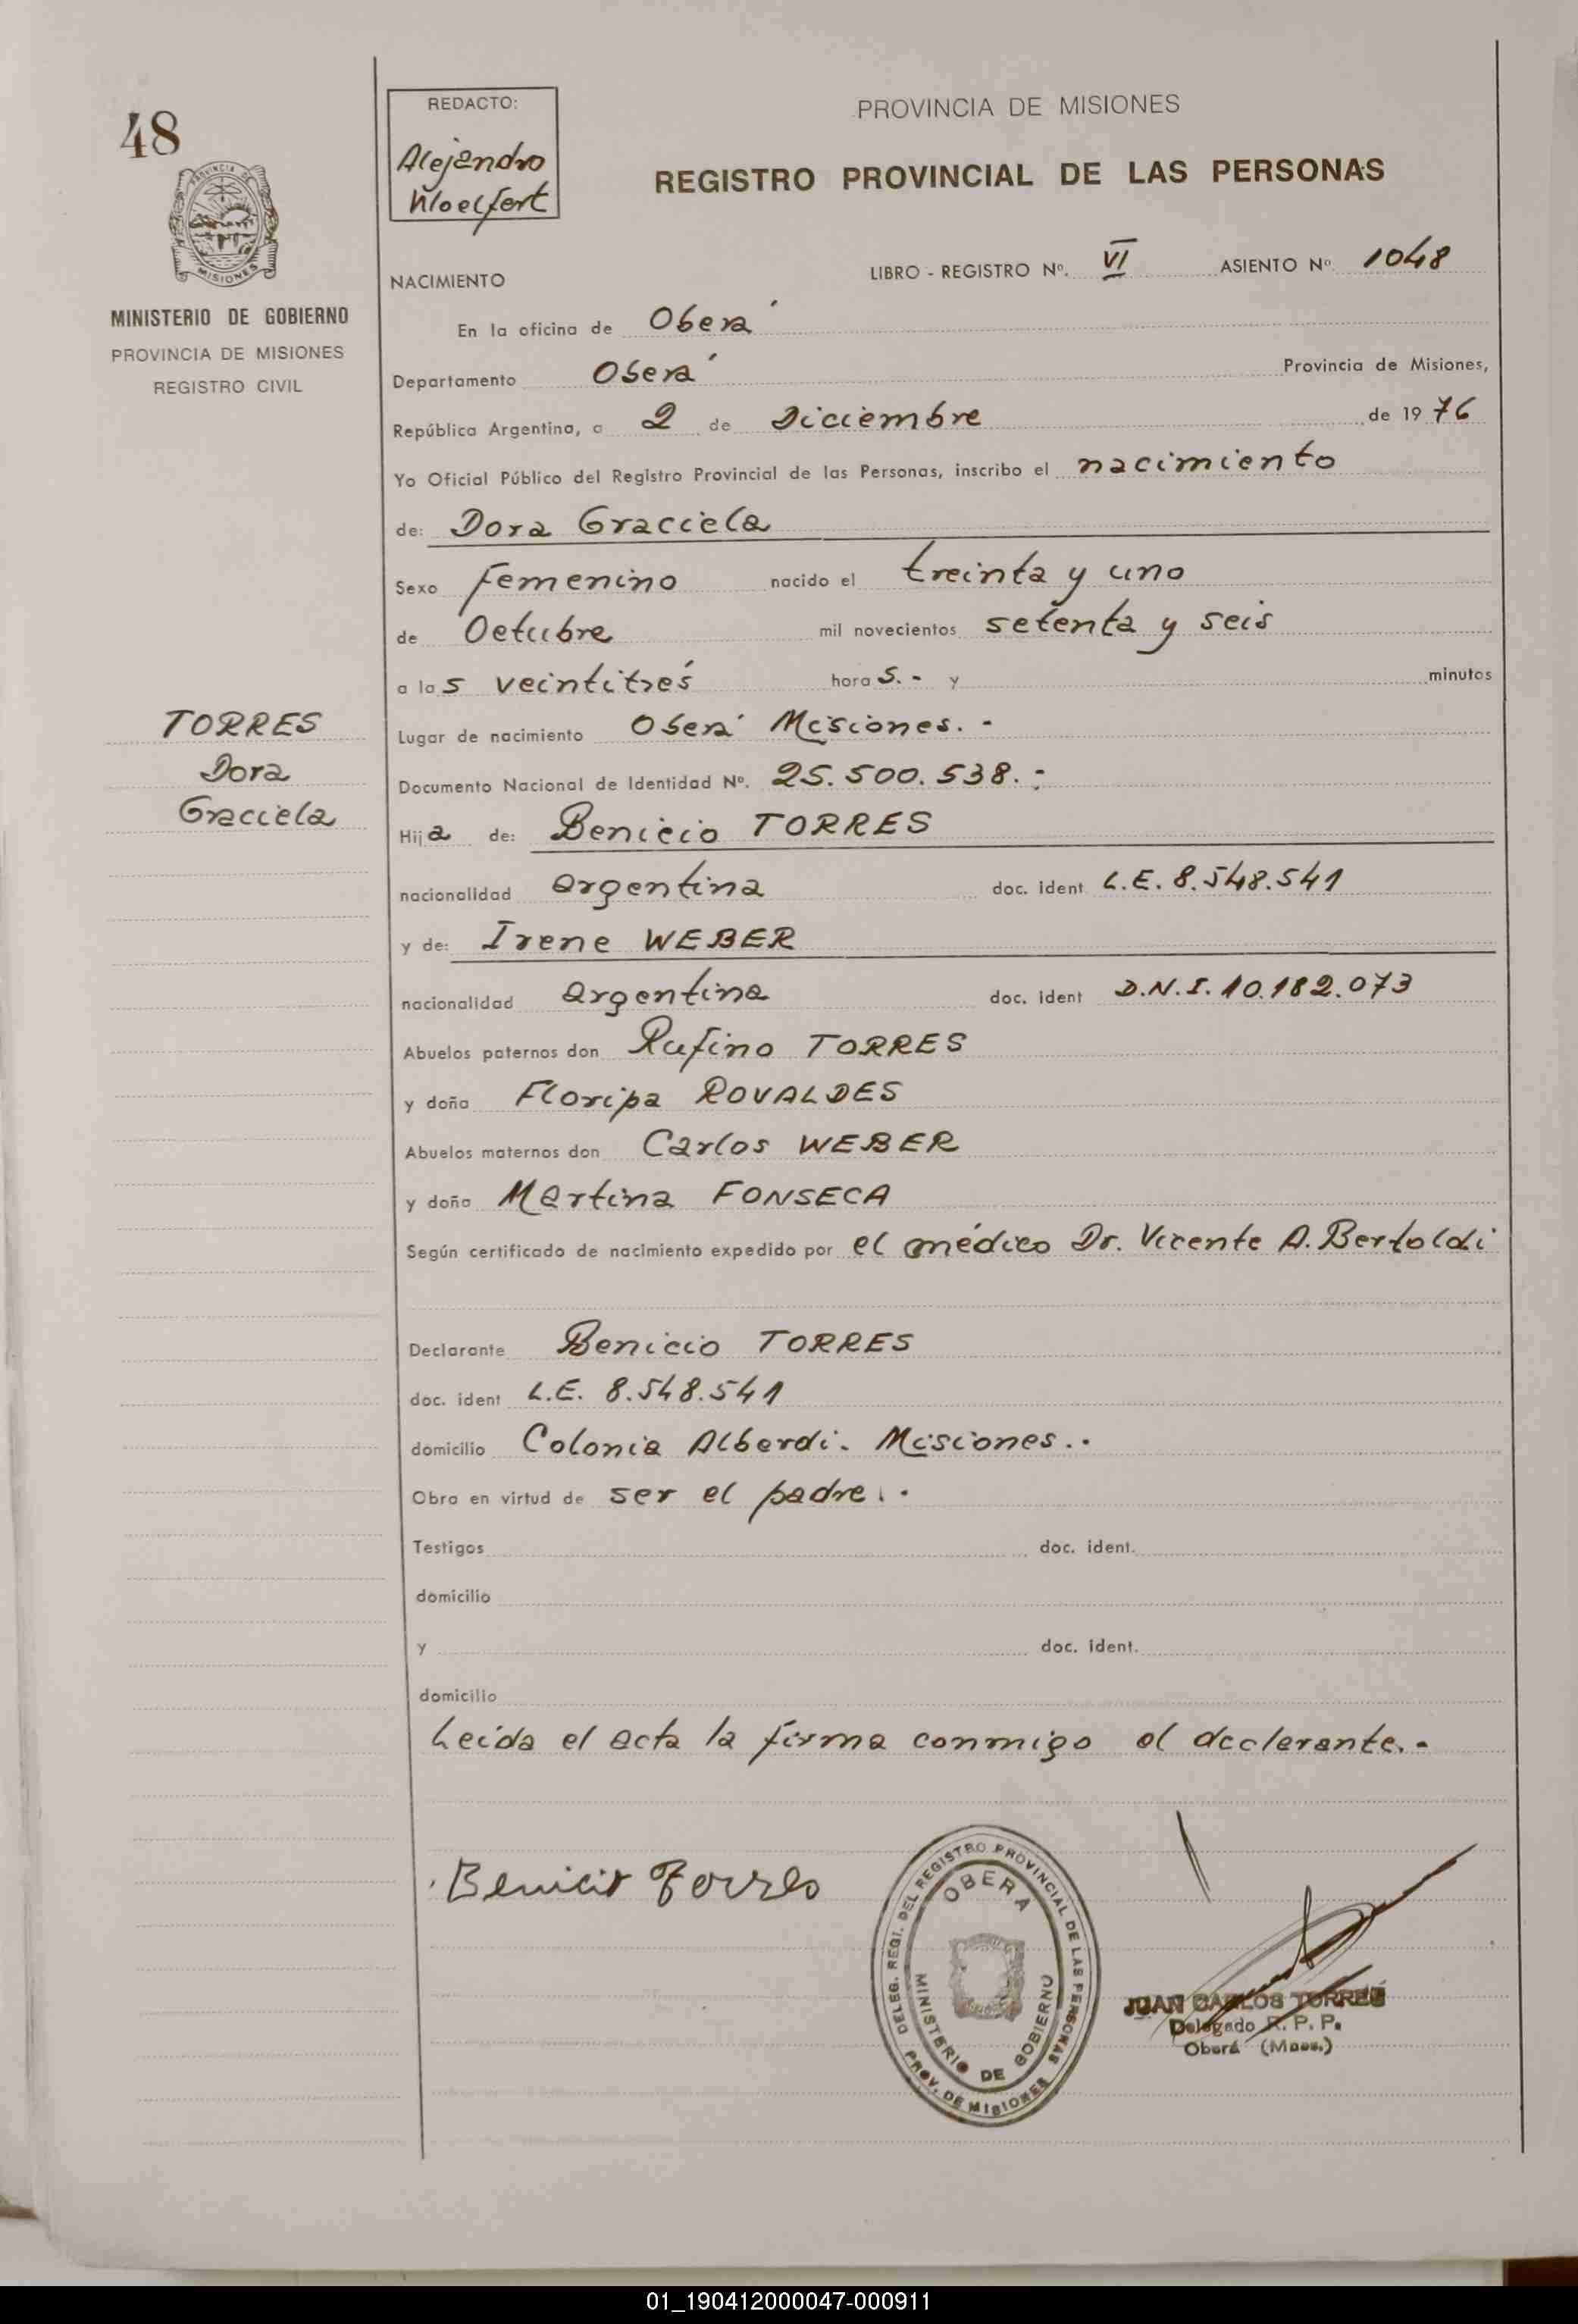 48
REDACTO:
Alejandro
Woelfert
PROVINCIA DE MISIONES
REGISTRO PROVINCIAL DE LAS PERSONAS
PROVINCIA DE
MISIONES
MINISTERIO DE GOBIERNO
PROVINCIA DE MISIONES
REGISTRO CIVIL
NACIMIENTO
LIBRO - REGISTRO Nº. VI ASIENTO Nº. 1048
En la oficina de Oberá
Departamento Oberá Provincia de Misiones,
República Argentina, a 2 de Diciembre de 1976
Yo Oficial Público del Registro Provincial de las Personas, inscribo el nacimiento
de: Dora Graciela
Sexo femenino nacido el treinta y uno
de Octubre mil novecientos setenta y seis
a las veintitrés horas.- y minutos
Lugar de nacimiento Oberá Misiones.-
Documento Nacional de Identidad Nº. 25.500.538.-
Hija de: Benicio TORRES
nacionalidad argentina doc. ident L.E. 8.548.541
y de: Irene WEBER
nacionalidad argentina doc. ident D.N.I. 10.182.073
Abuelos paternos don Rufino TORRES
y doña Floripa ROVALDES
Abuelos maternos don Carlos WEBER
y doña Martina FONSECA
Según certificado de nacimiento expedido por el médico Dr. Vicente A. Bertoldi
Declarante Benicio TORRES
doc. ident L.E. 8.548.541
domicilio Colonia Alberdi. Misiones..
Obra en virtud de ser el padre..
Testigos doc. ident.
domicilio
y doc. ident.
domicilio
Leída el acta la firma conmigo el declarante.-
TORRES
Dora
Graciela
Benicio Torres
DELEG. REGI. DEL REGISTRO PROVINCIAL DE LAS PERSONAS
PROV. DE MISIONES
OBERA
MINISTERIO DE GOBIERNO
JUAN CARLOS TORRES
Delegado R. P. P.
Oberá (Mnes.)
01_190412000047-000911